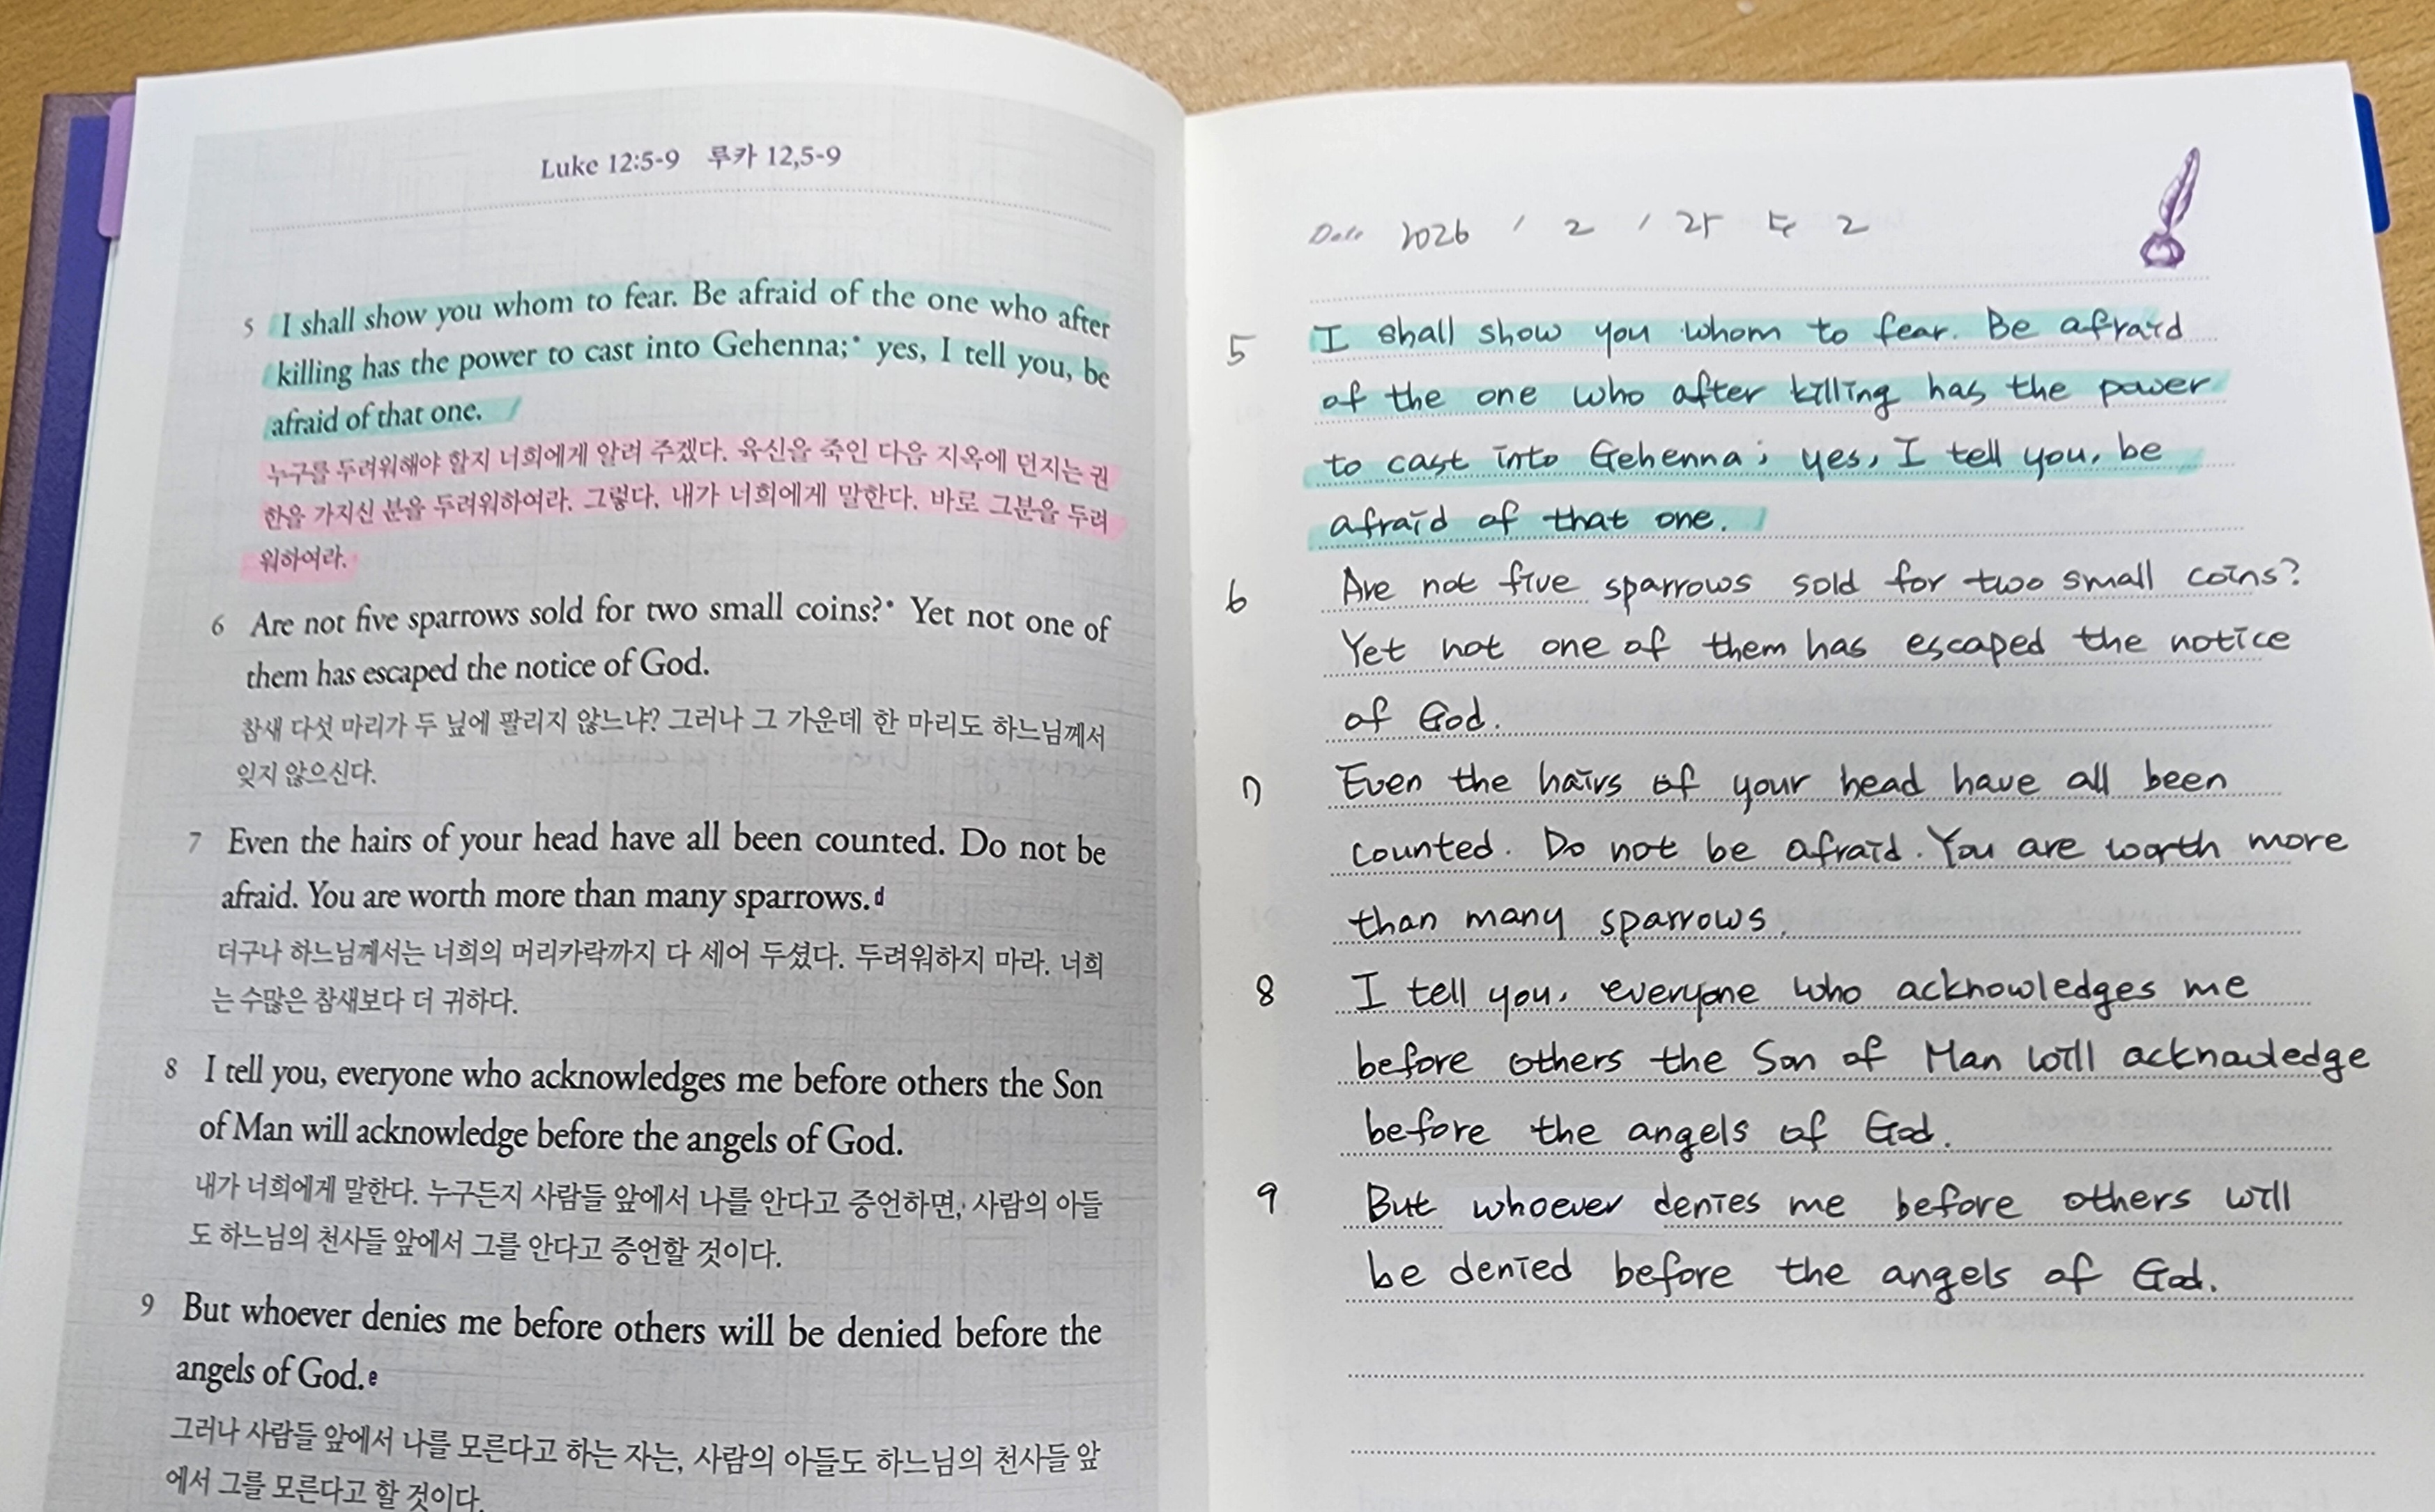 Luke 12:5-9 루카 12,5-9
5 I shall show you whom to fear. Be afraid of the one who after
killing has the power to cast into Gehenna;* yes, I tell you, be
afraid of that one.
누구를 두려워해야 할지 너희에게 알려 주겠다. 육신을 죽인 다음 지옥에 던지는 권
한을 가지신 분을 두려워하여라. 그렇다, 내가 너희에게 말한다. 바로 그분을 두려
워하여라.
6 Are not five sparrows sold for two small coins?* Yet not one of
them has escaped the notice of God.
참새 다섯 마리가 두 닢에 팔리지 않느냐? 그러나 그 가운데 한 마리도 하느님께서
잊지 않으신다.
7 Even the hairs of your head have all been counted. Do not be
afraid. You are worth more than many sparrows.d
더구나 하느님께서는 너희의 머리카락까지 다 세어 두셨다. 두려워하지 마라. 너희
는 수많은 참새보다 더 귀하다.
8 I tell you, everyone who acknowledges me before others the Son
of Man will acknowledge before the angels of God.
내가 너희에게 말한다. 누구든지 사람들 앞에서 나를 안다고 증언하면, 사람의 아들
도 하느님의 천사들 앞에서 그를 안다고 증언할 것이다.
9 But whoever denies me before others will be denied before the
angels of God.e
그러나 사람들 앞에서 나를 모른다고 하는 자는, 사람의 아들도 하느님의 천사들 앞
에서 그를 모른다고 할 것이다.
Date 2026 / 2 /
5 I shall show you whom to fear. Be afraid
of the one who after killing has the power
to cast into Gehenna; yes, I tell you, be
afraid of that one.
6 Are not five sparrows sold for two small coins?
Yet not one of them has escaped the notice
of God.
7 Even the hairs of your head have all been
counted. Do not be afraid. You are worth more
than many sparrows.
8 I tell you, everyone who acknowledges me
before others the Son of Man will acknowledge
before the angels of God.
9 But whoever denies me before others will
be denied before the angels of God.